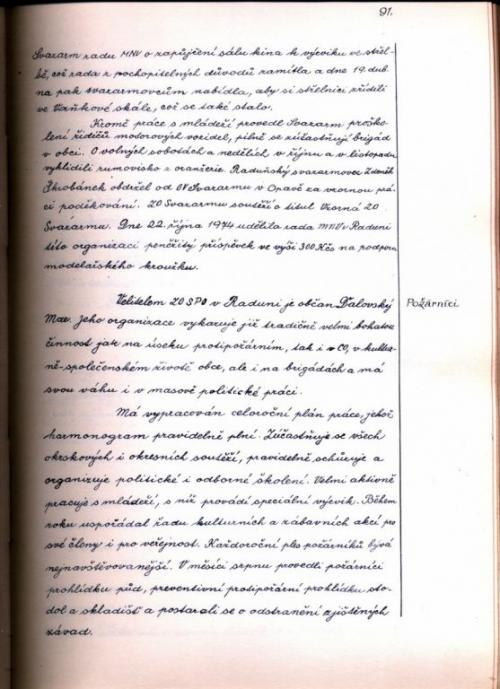 91.
Svazarm radu MNV o zapůjčení sálu kina k výcviku ve střel-
bě, což rada z pochopitelných důvodů zamítla a dne 19. dub-
na pak svazarmovcům nabídla, aby si střelnici zřídili
ve skále, což se také stalo.
Kromě práce s mládeží provedl Svazarm proško-
lení řidičů motorových vozidel, pilně se zúčastňují brigád
v obci. O volných sobotách a nedělích v říjnu a v listopadu
vyklidili rumovisko z oranžerie. Raduňský svazarmovec Zdeněk
Škrobánek obdržel od OV Svazarmu v Opavě za vzornou prá-
ci poděkování. ZO Svazarmu soutěží o titul Vzorná ZO
Svazarmu. Dne 22. října 1974 udělila rada MNV v Raduni
této organizaci peněžitý příspěvek ve výši 300 Kčs na podporu
modelářského kroužku.
Velitelem ZO SPO v Raduni je občan Ďalovský
Max. Jeho organizace vykazuje již tradičně velmi bohatou
činnost jak na úseku protipožárním, tak i v CO, v kultur-
ně-společenském životě obce, ale i na brigádách a má
svou váhu i v masově politické práci.
Požárníci
Má vypracován celoroční plán práce, jehož
harmonogram pravidelně plní. Zúčastňuje se všech
okrskových i okresních soutěží, pravidelně schůzuje a
organizuje politické i odborné školení. Velmi aktivně
pracuje s mládeží, s níž provádí speciální výcvik. Během
roku uspořádal řadu kulturních a zábavních akcí pro
své členy i pro veřejnost. Každoroční ples požárníků bývá
nejnavštěvovanější. V měsíci srpnu provedli požárníci
prohlídku půd, preventivní protipožární prohlídku sto-
dol a skladišť a postarali se o odstranění zjištěných
závad.